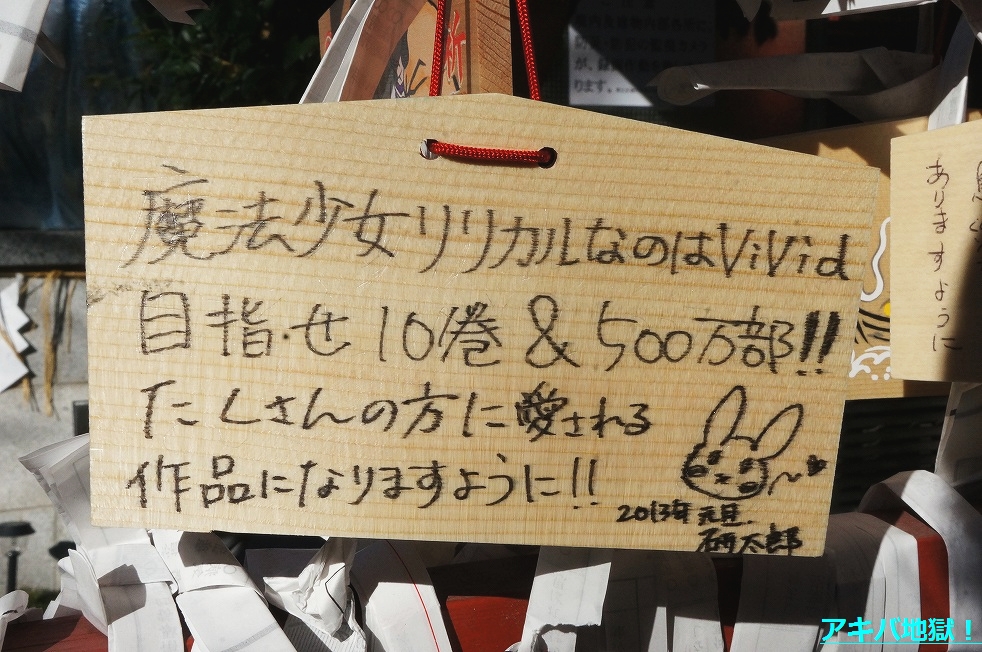 祈
魔法少女リリカルなのはViVid
目指せ10巻&500万部!!
たくさんの方に愛される
作品になりますように!!
2013年元旦.
研太郎
ありますように
アキバ地獄!